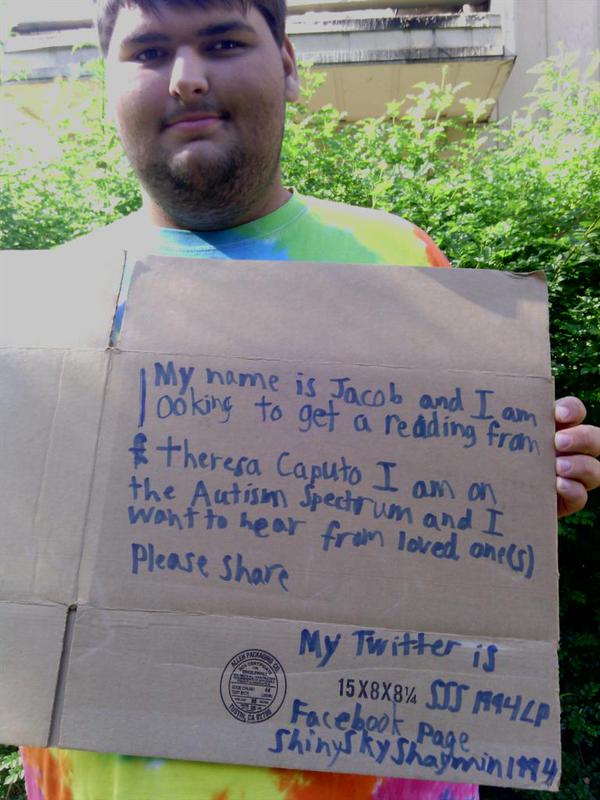 My name is Jacob and I am
looking to get a reading from
Theresa Caputo I am on
the Autism Spectrum and I
want to hear from loved one(s)
Please share
My Twitter is
SSS1994LP
Facebook Page
ShinySkyShaymin1994
15X8X8¼
ALLEN PACKAGING CO.
BOX CERTIFICATE
TUSTIN, CA 92780